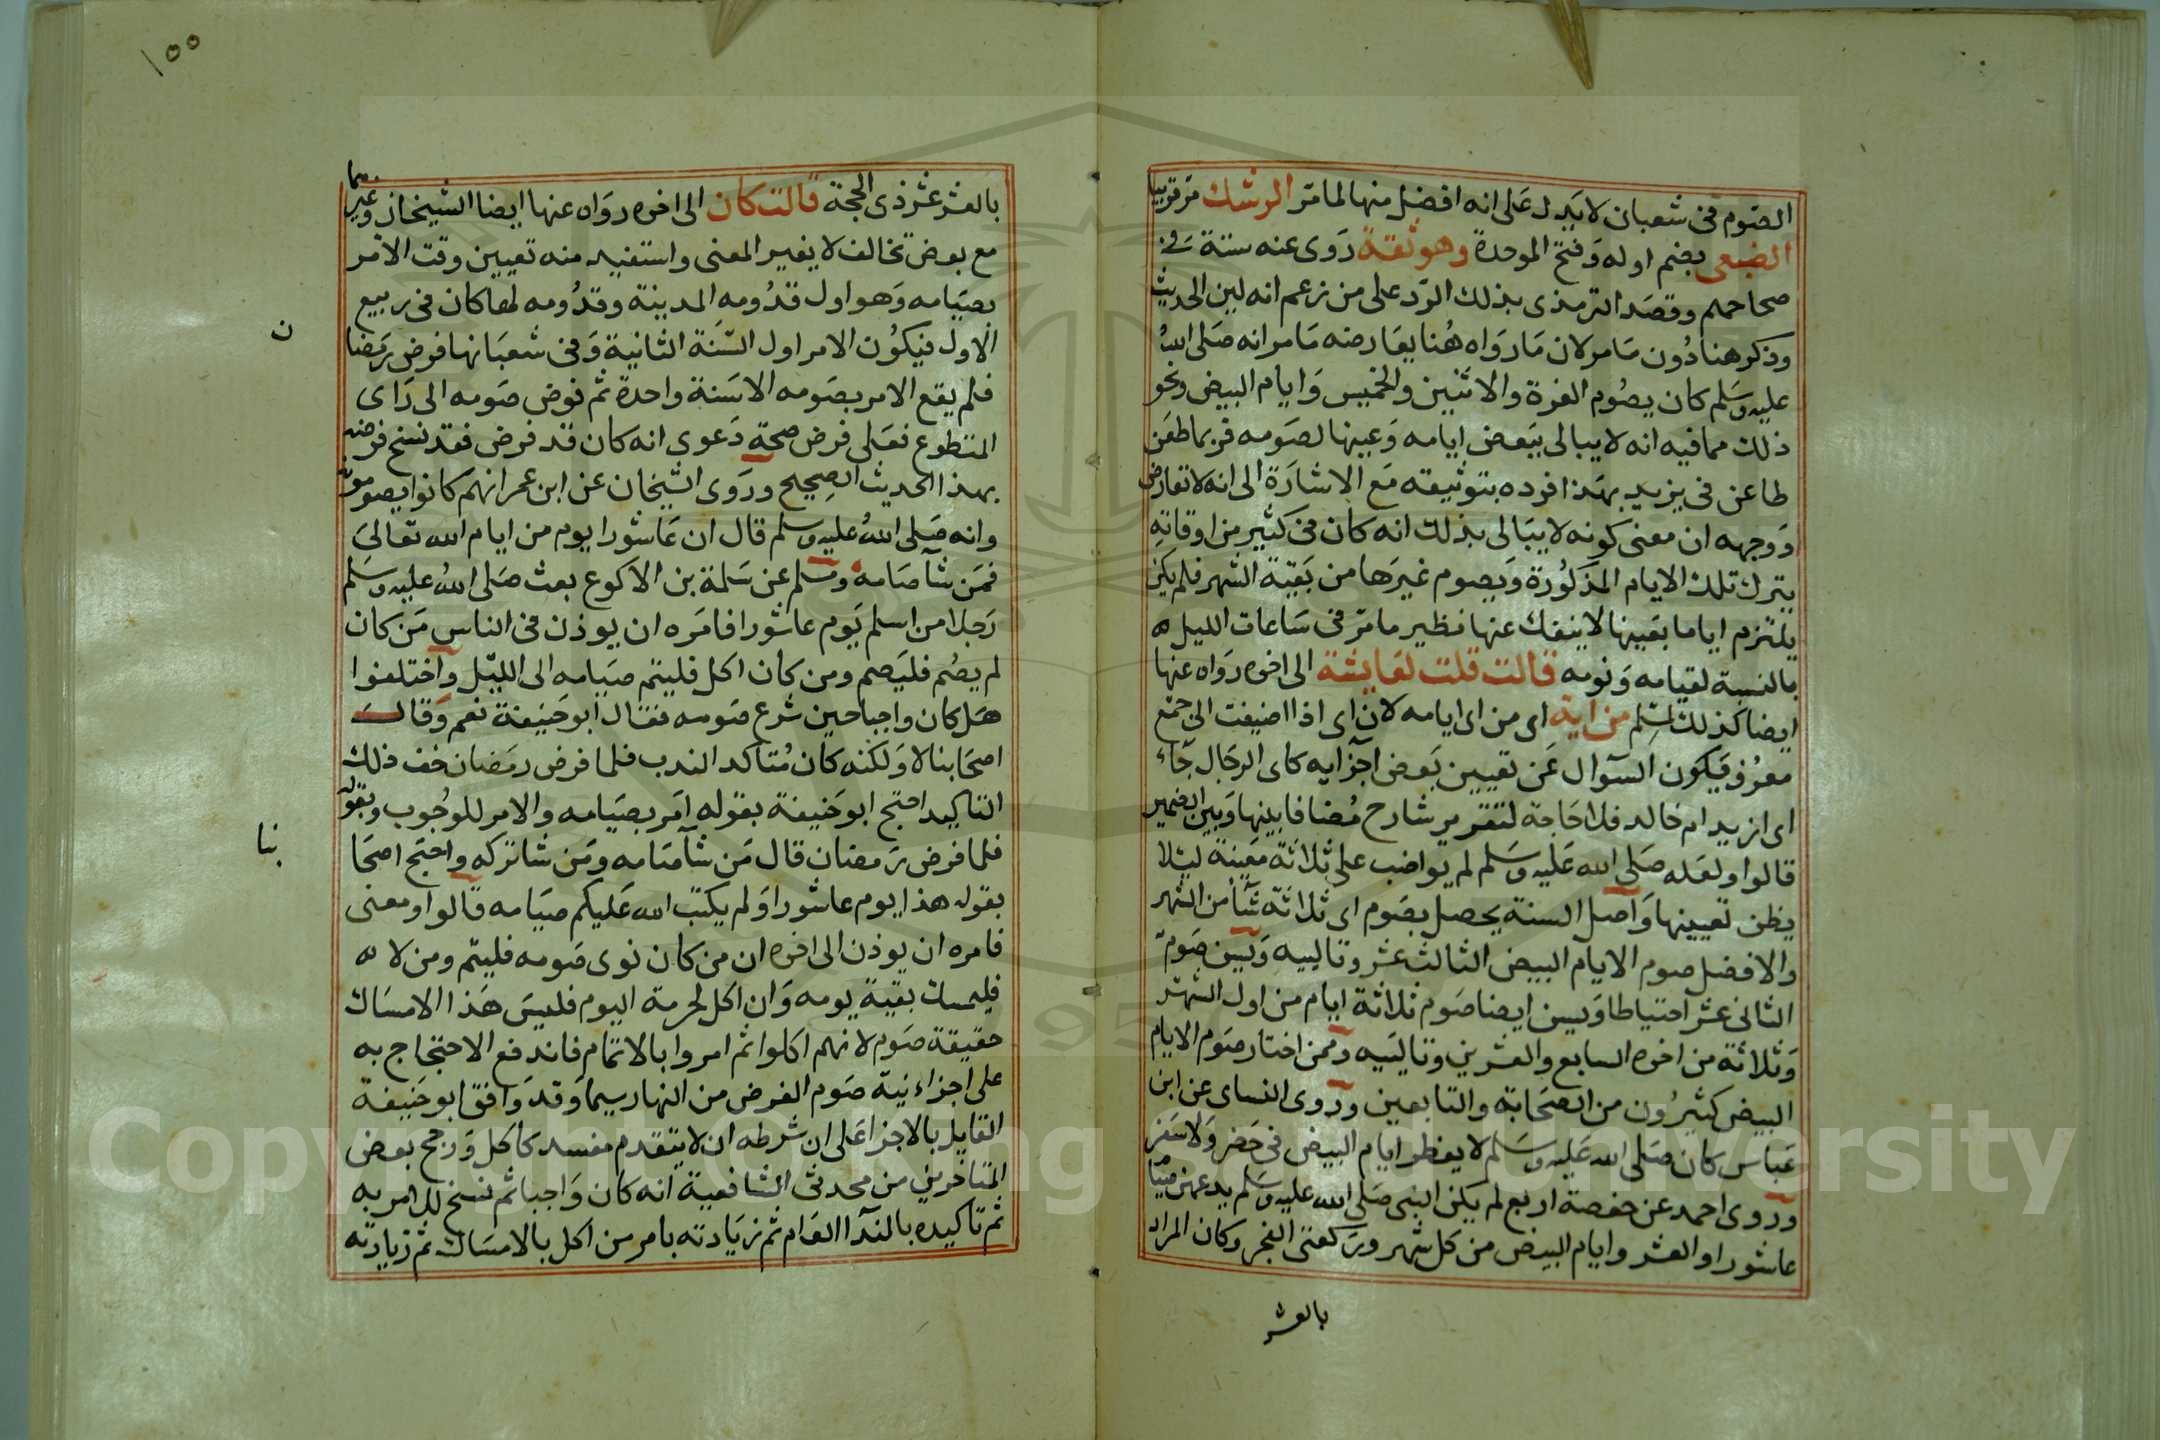 ١٥٥
الصوم في شعبان لا يدل على انه افضل منها لما مر الرشك مر قريبا
الضبعي بضم اوله وفتح الموحدة وهو ثقة روى عنه ستة في
صحاحهم وقصد الترمذي بذلك الرد على من زعم انه لين الحديث
وذكر هنا دون ما مر لان ما رواه هنا يعارضه ما مر انه صلى الله
عليه وسلم كان يصوم الغرة والاثنين والخميس وايام البيض ونحو
ذلك مما فيه انه لا يبالي ببعض ايامه وعينها لصومه فربما طعن
طاعن في يزيد بهذا فرده بتوثيقه مع الاشارة الى انه لا تعارض
ووجهه ان معنى كونه لا يبالي بذلك انه كان في كثير من اوقاته
يترك تلك الايام المذكورة ويصوم غيرها من بقية الشهر فلم يكن
يلتزم اياما بعينها لا ينفك عنها نظير ما مر في ساعات الليل
بالنسبة لقيامه ونومه قالت قلت لعايشة الى اخره رواه عنها
ايضا كذلك مسلم من اية اي من اي ايامه لان اي اذا اضيفت الى جمع
معرف فيكون السؤال عن تعيين بعض اجزايه كاي الرجال جاء
اي ازيد ام خالد فلا حاجة لتقرير شارح مضافا بينها وبين الضمير
قالوا ولعله صلى الله عليه وسلم لم يواضب على ثلاثة معينة ليلا
يظن تعيينها واصل السنة يحصل بصوم اي ثلاثة شأ من الشهر
والافضل صوم الايام البيض الثالث عشر وتالييه ويسن صوم
الثاني عشر احتياطا ويسن ايضا صوم ثلاثة ايام من اول الشهر
وثلاثة من اخره السابع والعشرين وتالييه وممن اختار صوم الايام
البيض كثيرون من الصحابة والتابعين وروى النساى عن ابن
عباس كان صلى الله عليه وسلم لا يفطر ايام البيض في حضر ولا سفر
وروى احمد عن حفصة اربع لم يكن النبي صلى الله عليه وسلم يدعهن صيام
عاشورا والعشر وايام البيض من كل شهر وركعتي الفجر وكان المراد
بالعشر
بالعشر عشر ذي الحجة قالت كان الى اخره رواه عنها ايضا الشيخان وغيرهما
مع بعض تخالف لا يغير المعنى واستفيد منه تعيين وقت الامر
بصيامه وهو اول قدومه المدينة وقدومه لها كان في ربيع
الاول فيكون الامر اول السنة الثانية وفي شعبانها فرض رمضا
ن
فلم يقع الامر بصومه الا سنة واحدة ثم فوض صومه الى راى
المتطوع فعلى فرض صحة دعوى انه كان قد فرض فقد نسخ فرضه
بهذا الحديث الصحيح وروى الشيخان عن ابن عمر انهم كانوا يصومونه
وانه صلى الله عليه وسلم قال ان عاشورا يوم من ايام الله تعالى
فمن شآ صامه ومسلم عن سلمة بن الاكوع بعث صلى الله عليه وسلم
رجلا من اسلم يوم عاشورا فامره ان يوذن في الناس من كان
لم يصم فليصم ومن كان اكل فليتم صيامه الى الليل واختلفوا
هل كان واجبا حين شرع صومه فقال ابو حنيفة نعم وقالت
اصحابنا لا ولكنه كان متاكد الندب فلما فرض رمضان خف ذلك
التاكيد احتج ابو حنيفة بقوله امر بصيامه والامر للوجوب وبقوله
فلما فرض رمضان قال من شآ صامه ومن شا تركه واحتج اصحا
بنا
بقوله هذا يوم عاشورا ولم يكتب الله عليكم صيامه قالوا ومعنى
فامره ان يوذن الى اخره ان من كان نوى صومه فليتم ومن لا
فليمسك بقية يومه وان اكل لحرمة اليوم فليس هذا الامساك
حقيقة صوم لانهم اكلوا ثم امروا بالاتمام فاندفع الاحتجاج به
على اجزاء نية صوم الفرض من النهار سيما وقد وافق ابو حنيفة
القايل بالاجزا على ان شرطه ان لا يتقدم مفسد كاكل ورجح بعض
المتاخرين من محدثي الشافعية انه كان واجبا ثم نسخ للامر به
ثم تاكيده بالندآ العام ثم زيادته بامر من اكل بالامساك ثم زيادته
Copyright © King Saud University